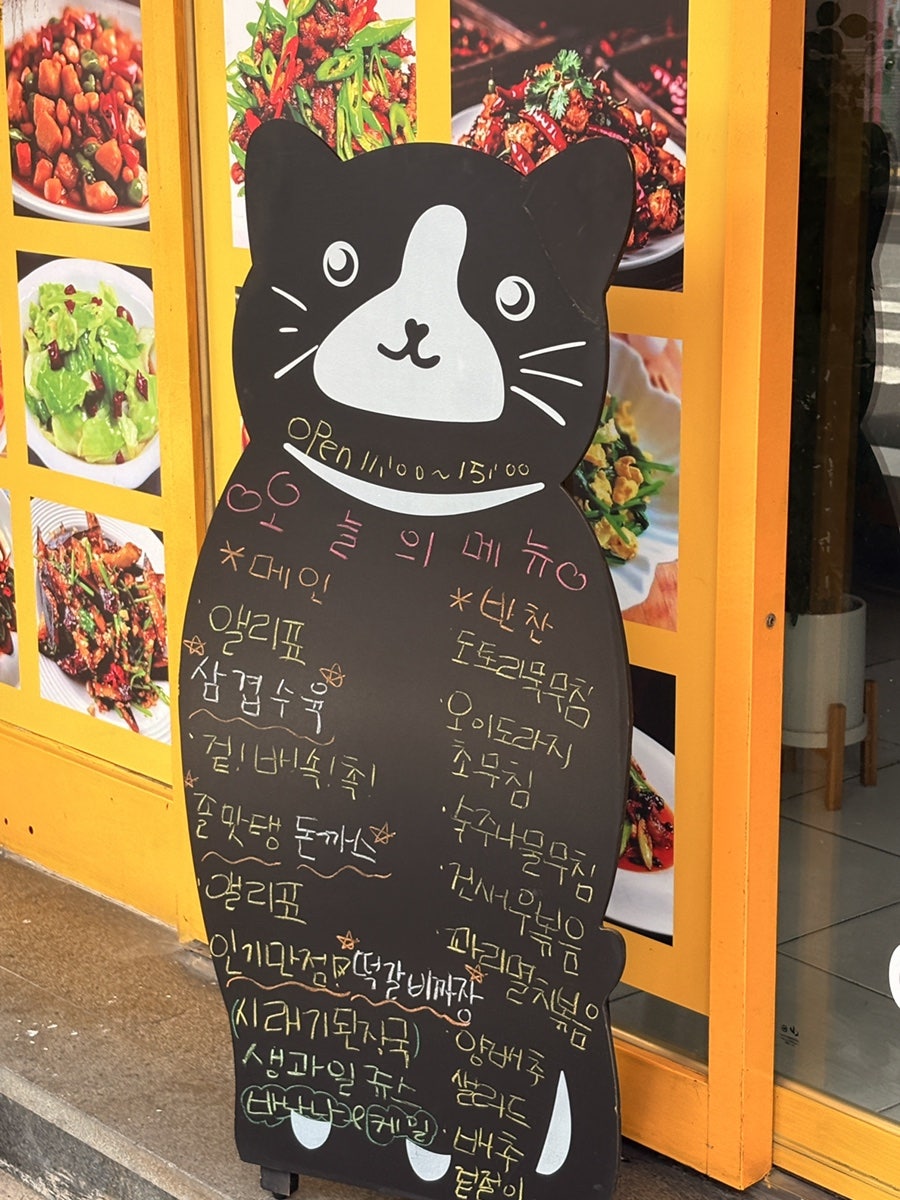 OPen 11:00~15:00
♡오늘의 메뉴♡
*메인
·앨리표
☆삼겹수육☆
·겉!바!속!촉!
☆존맛탱 돈까스☆
·앨리표
인기만점!☆떡갈비짜장☆
(시래기된장국)
생과일쥬스
(바나나&케일)
*반찬
도토리묵무침
·오이도라지
초무침
·숙주나물무침
·건새우볶음
·꽈리멸치볶음
·양배추
샐러드
·배추
겉절이